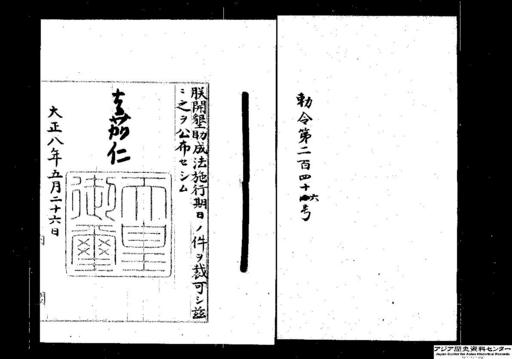 勅令第二百四十六号
朕開墾助成法施行期日ノ件ヲ裁可シ茲
ニ之ヲ公布セシム
嘉仁
天皇御璽
大正八年五月二十六日
アジア歴史資料センター
Japan Center for Asian Historical Records